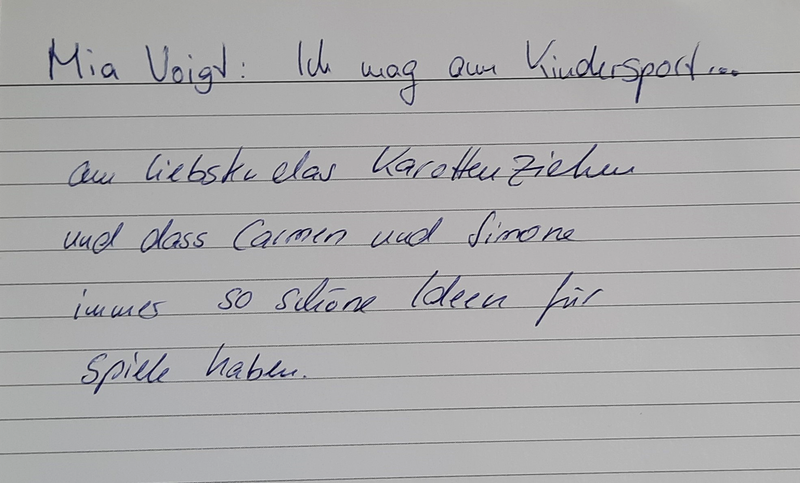 Mia Voigt: Ich mag am Kindersport...
am liebsten das Karotten ziehen
und dass Carmen und Simone
immer so schöne Ideen für
Spiele haben.